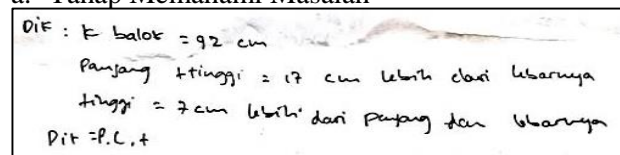 a. Tahap Memahami Masalah
Dik : k balok = 92 cm
Panjang + tinggi = 17 cm lebih dari lebarnya
tinggi = 7 cm lebih dari panjang dan lebarnya
Dit = P.L.t